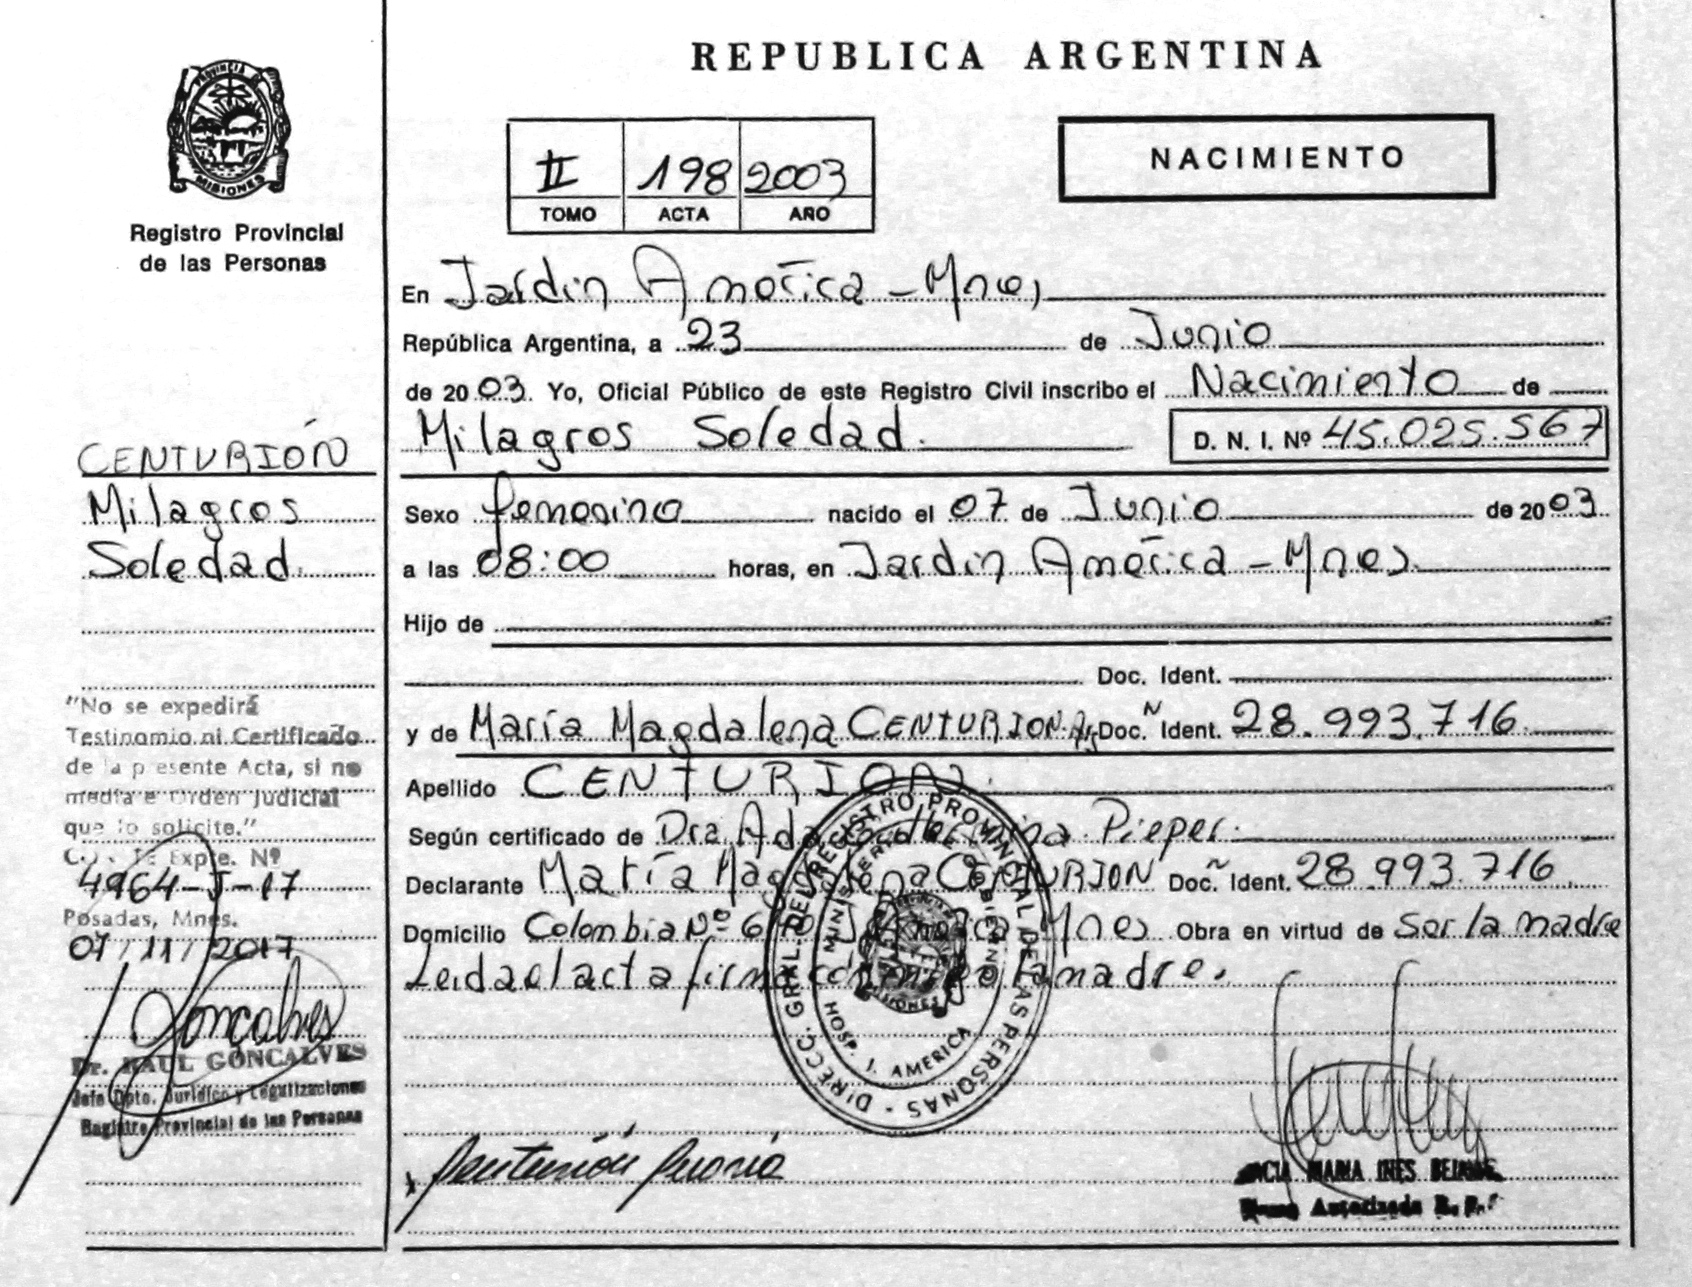 PROVINCIA DE
MISIONES
Registro Provincial
de las Personas
CENTURIÓN
Milagros
Soledad.
"No se expedirá
Testinomio ni Certificado
de la presente Acta, si no
media Orden Judicial
que lo solicite."
Expte. Nº
4964-J-17
Posadas, Mnes.
07/11/2017
Goncalves
Dr. RAUL GONCALVES
Jefe Dpto. Jurídico y Legalizaciones
Registro Provincial de las Personas
REPUBLICA ARGENTINA
II 198 2003
TOMO ACTA AÑO
NACIMIENTO
En Jardin América - Mnes,
República Argentina, a 23 de Junio
de 2003. Yo, Oficial Público de este Registro Civil inscribo el Nacimiento de
Milagros Soledad. D. N. I. Nº 45.025.567
Sexo femenino nacido el 07 de Junio de 2003
a las 08:00 horas, en Jardin América - Mnes.
Hijo de
Doc. Ident.
y de María Magdalena CENTURION. Arg Doc. Ident. 28.993.716
Apellido CENTURION.
Según certificado de Dra. Ada Pieper.
Declarante María Magdalena CENTURION Doc. Ident. 28.993.716
Domicilio Colombia Nº 670 J. América Mnes Obra en virtud de Ser la madre
Leida el acta firma conmigo la madre.
DIRECC. GRAL. DEL REGISTRO PROVINCIAL DE LAS PERSONAS
MINISTERIO DE GOBIERNO
HOSP. J. AMERICA
MISIONES
x Centurión María
MARIA INES
Autorizada